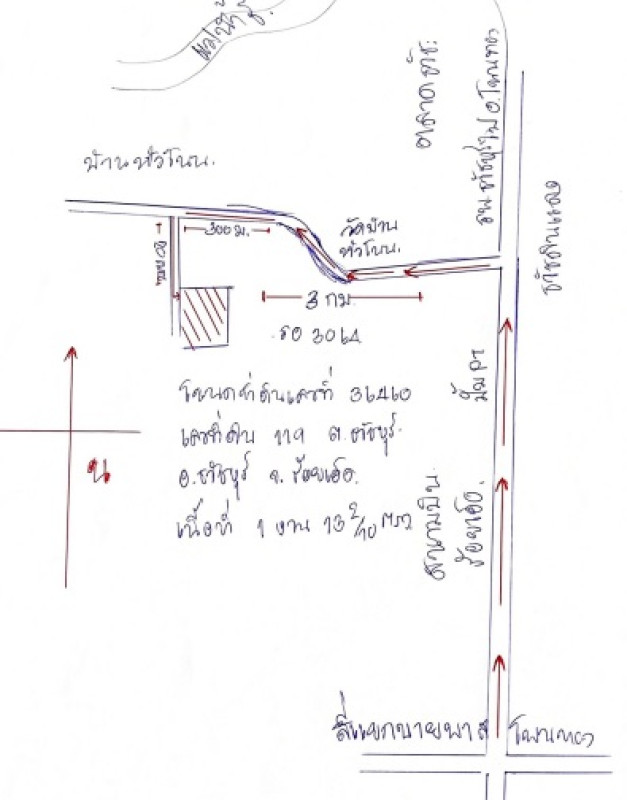 แม่น้ำชี
ตลาดธัช:
รพ.ธวัชบุรี ไป อ.โพนทอง
บ้านหัวโนน.
วัดบ้าน
หัวโนน.
300 ม.
3 กม.
รอ 3064
โฉนดที่ดินเลขที่ 36460
เลขที่ดิน 119 ต.ธวัชบุรี
อ.ธวัชบุรี จ.ร้อยเอ็ด.
เนื้อที่ 1 งาน 13 2/10 ตรว
น
ปั๊ม PT
สนามบิน
ร้อยเอ็ด.
สี่แยกบายพาส โพนทอง